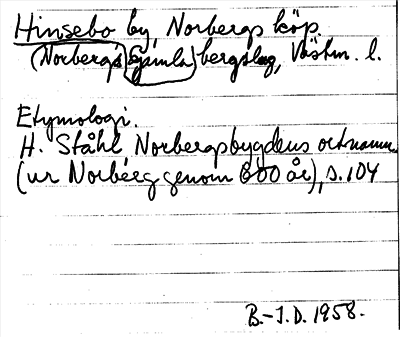 Hinsebo by, Norbergs köp.
(Norbergs gamla bergslag, Västm. l.
Etymologi.
H. Ståhl, Norbergsbygdens ortnamn
(ur Norberg genom 600 år), s. 104
B.-I.D. 1958.